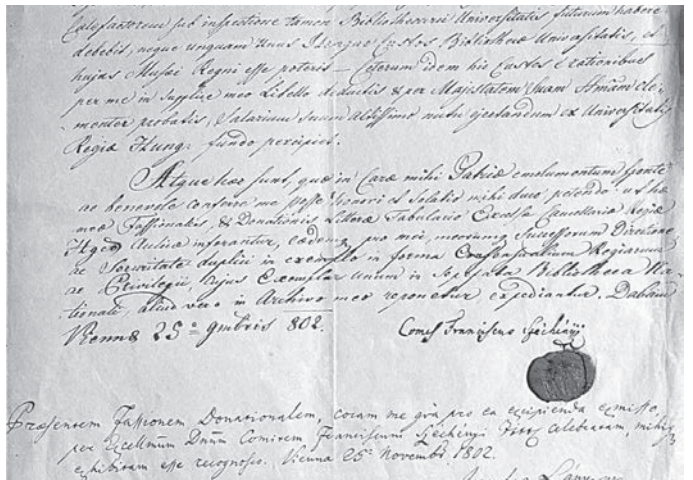 Calefactorem sub inspectione tamen Bibliothecarii Universitatis futurum habere
debebit, neque unquam unus Idemque Custos Bibliothecæ Universitatis, et
hujus Musæi Regni esse poterit. — Ceterum idem hic Custos e rationibus
per me in supplice meo Libello deductis & per Majestatem Suam Ssmam cle-
menter probatis, Salarium suum Altissimo nutu ex Universitatis
Regiæ Hung: fundo percipiet.
Atque hæc sunt, quæ in Caræ mihi Patriæ emolumentum sponte
ac benevole conferre me posse honori et solatio mihi duco, petendo: ut hæ
meæ Fassionales, & Donationis Litteræ Tabulario Excelsæ Cancellariæ Regiæ
Hgcæ Aulicæ inferantur, eædemq pro mei, meorumq Successorum Directione
ac Securitate duplici in exemplo in forma Consensualium Regiarum
ac Privilegii, cujus Exemplar unum in Bibliotheca Na-
tionali, aliud vero in Archivo meo reponetur expediantur. Dabam
Viennæ 25a 9mbris 802.
Comes Franciscus Széchényi
Præsentem Fassionem Donationalem, coram me pro ea excipienda exmisso,
per Excellmum Dnum Comitem Franciscum Széchényi celebratam, mihiq
exhibitam esse recognosco. Vienna 25a Novembr. 1802.